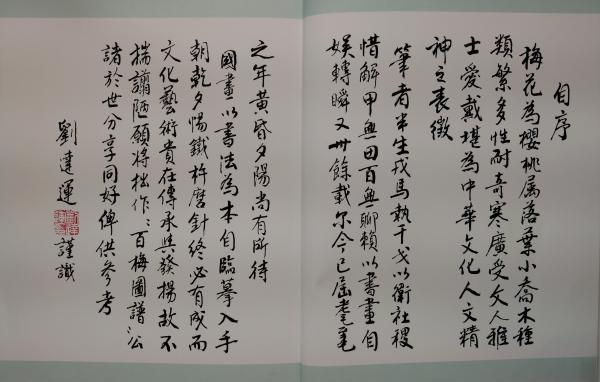 自序
梅花為櫻桃属落葉小喬木種
類繁多性耐奇寒廣受文人雅
士愛戴堪為中華文化人文精
神之表徵
筆者半生戎馬執干戈以衛社稷
惜解甲無田百無聊賴以書畫自
娛轉瞬又卅餘載尔今已届耄耋
之年黄昏夕陽尚有所待
國畫以書法為本自臨摹入手
朝乾夕惕鐵杵磨針終必有成而
文化藝術貴在傳承與發揚故不
揣譾陋願將拙作：百梅圖譜：公
諸於世分享同好俾供参考
劉達運
謹識